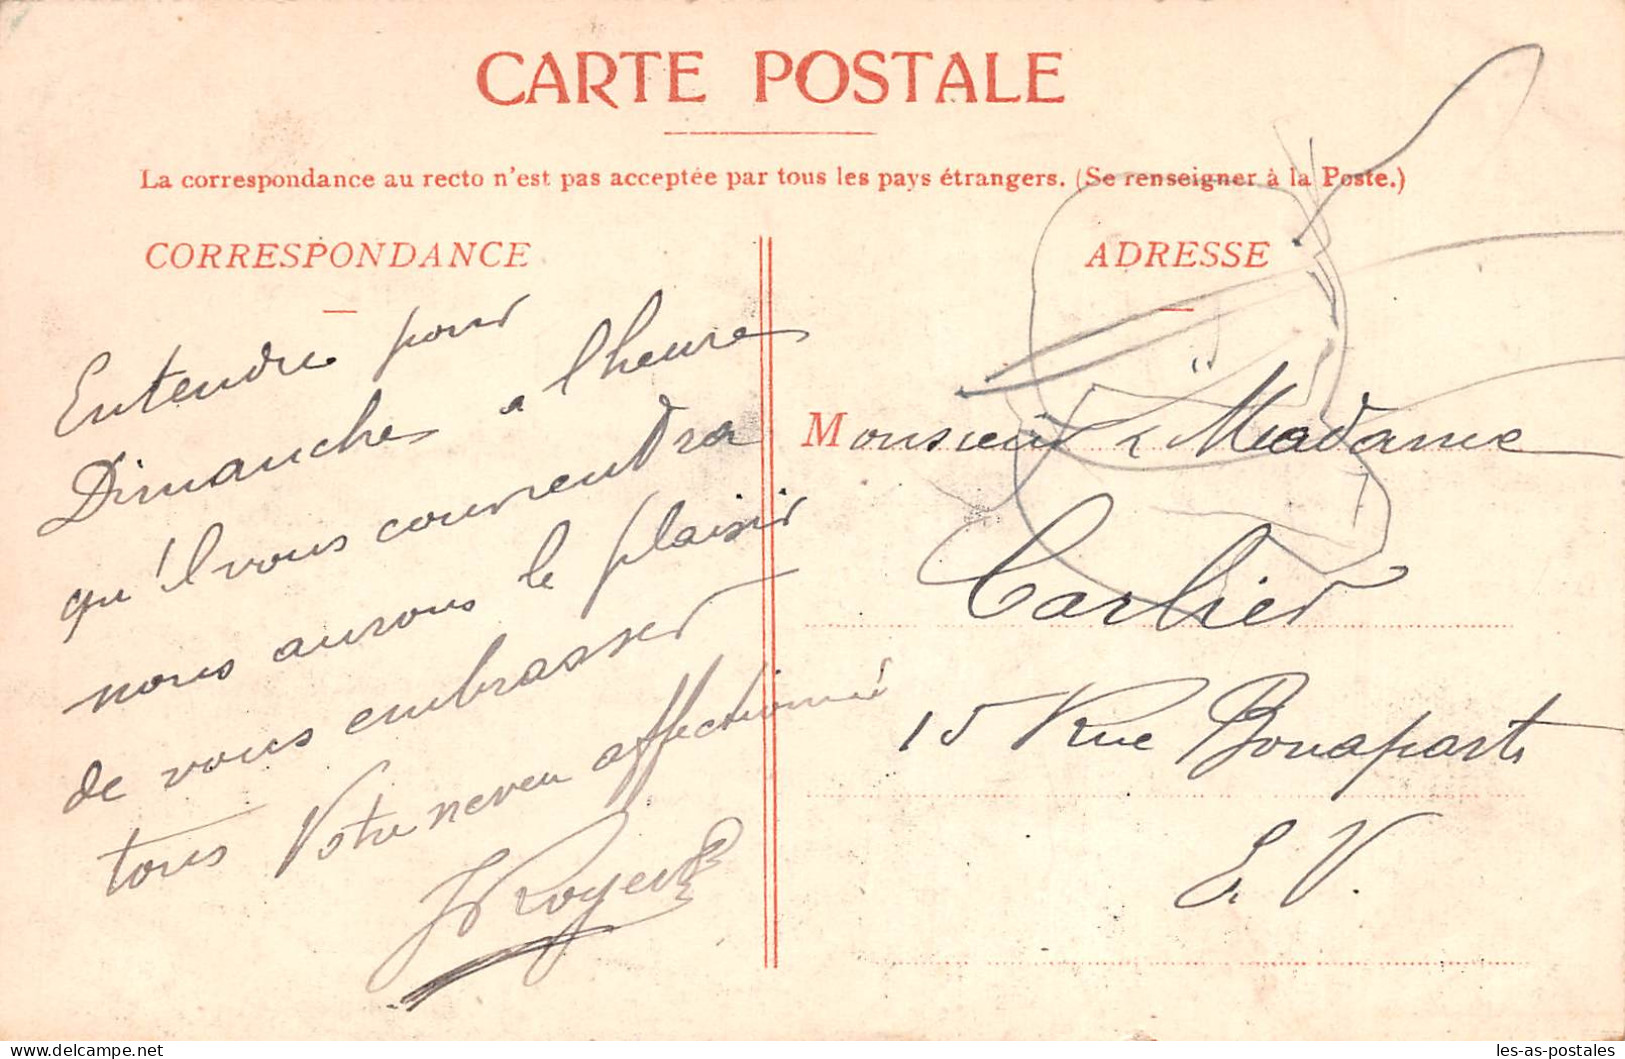 CARTE POSTALE
La correspondance au recto n'est pas acceptée par tous les pays étrangers. (Se renseigner à la Poste.)
CORRESPONDANCE
Entendu pour
Dimanche a l'heure
qu'il vous conviendra
nous aurons le plaisir
de vous embrasser
tous Votre neveu affectionné
ADRESSE
Monsieur & Madame
Carlier
15 Rue Bonaparte
E. V.
les-as-postales